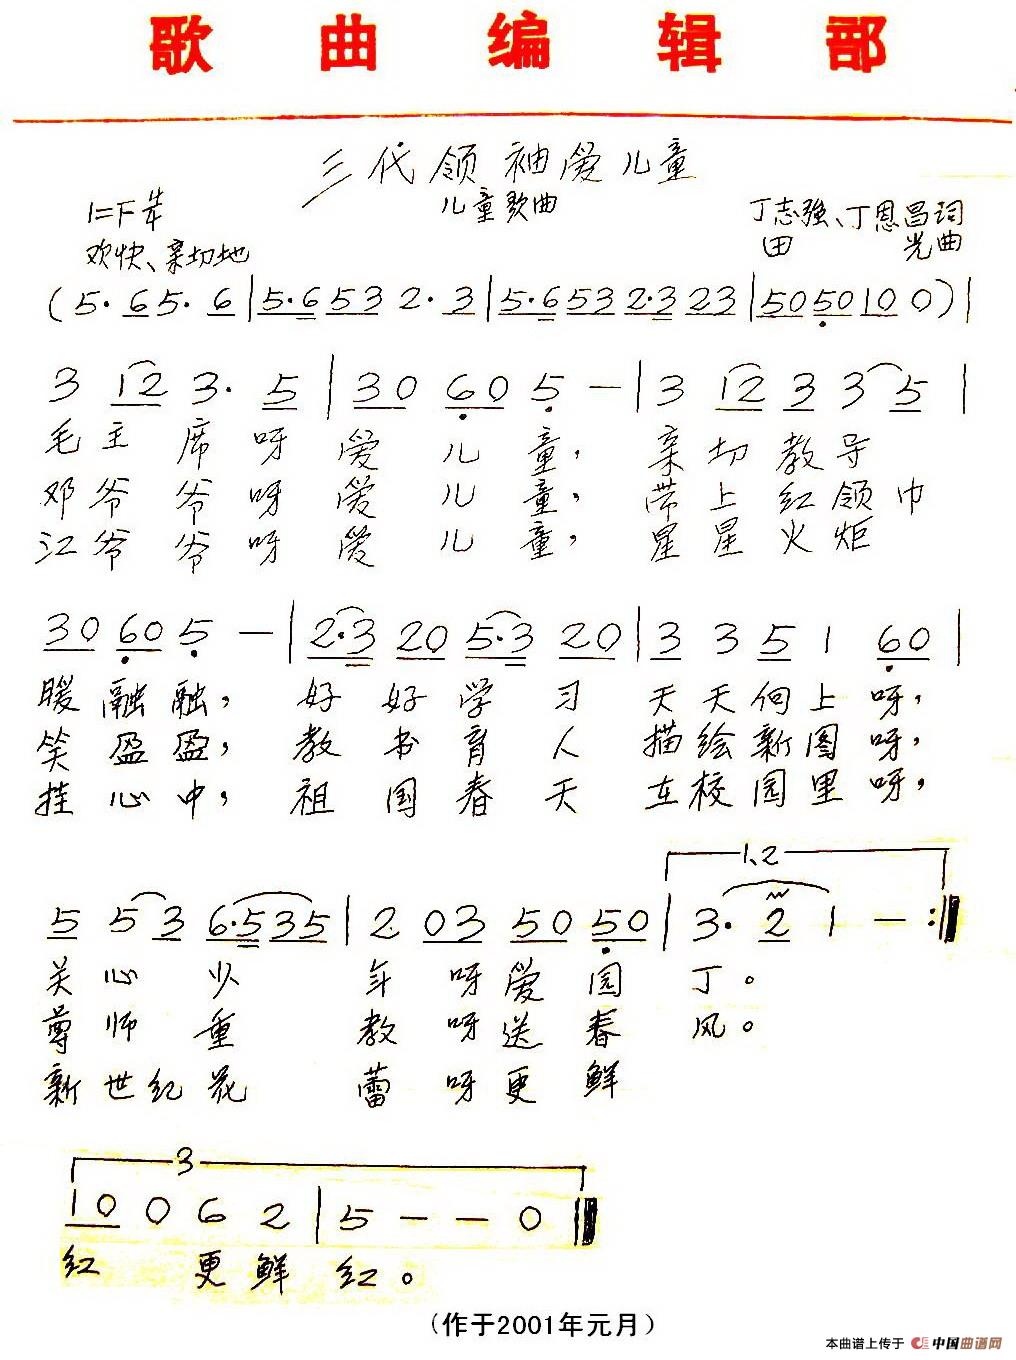 歌曲编辑部
三代领袖爱儿童
儿童歌曲
1=F 4/4
欢快、亲切地
丁志强、丁恩昌词
田光曲
(5·65·6|5·6532·3|5·6532·323|5050100)|
3 12 3· 5|30 60 5 —|3 12 3 3 5|
毛主席呀爱儿童，亲切教导
邓爷爷呀爱儿童，带上红领巾
江爷爷呀爱儿童，星星火炬
30 60 5 —|2·3 20 5·3 20|3 3 5 1 60|
暖融融，好好学习天天向上呀，
笑盈盈，教书育人描绘新图呀，
挂心中，祖国春天在校园里呀，
1、2
5 5 3 6·535|2 03 50 50|3· 2 1 — :‖
关心少年呀爱园丁。
尊师重教呀送春风。
新世纪花蕾呀更鲜
3
10 0 6 2|5 — — 0‖
红更鲜红。
（作于2001年元月）
本曲谱上传于 中国曲谱网